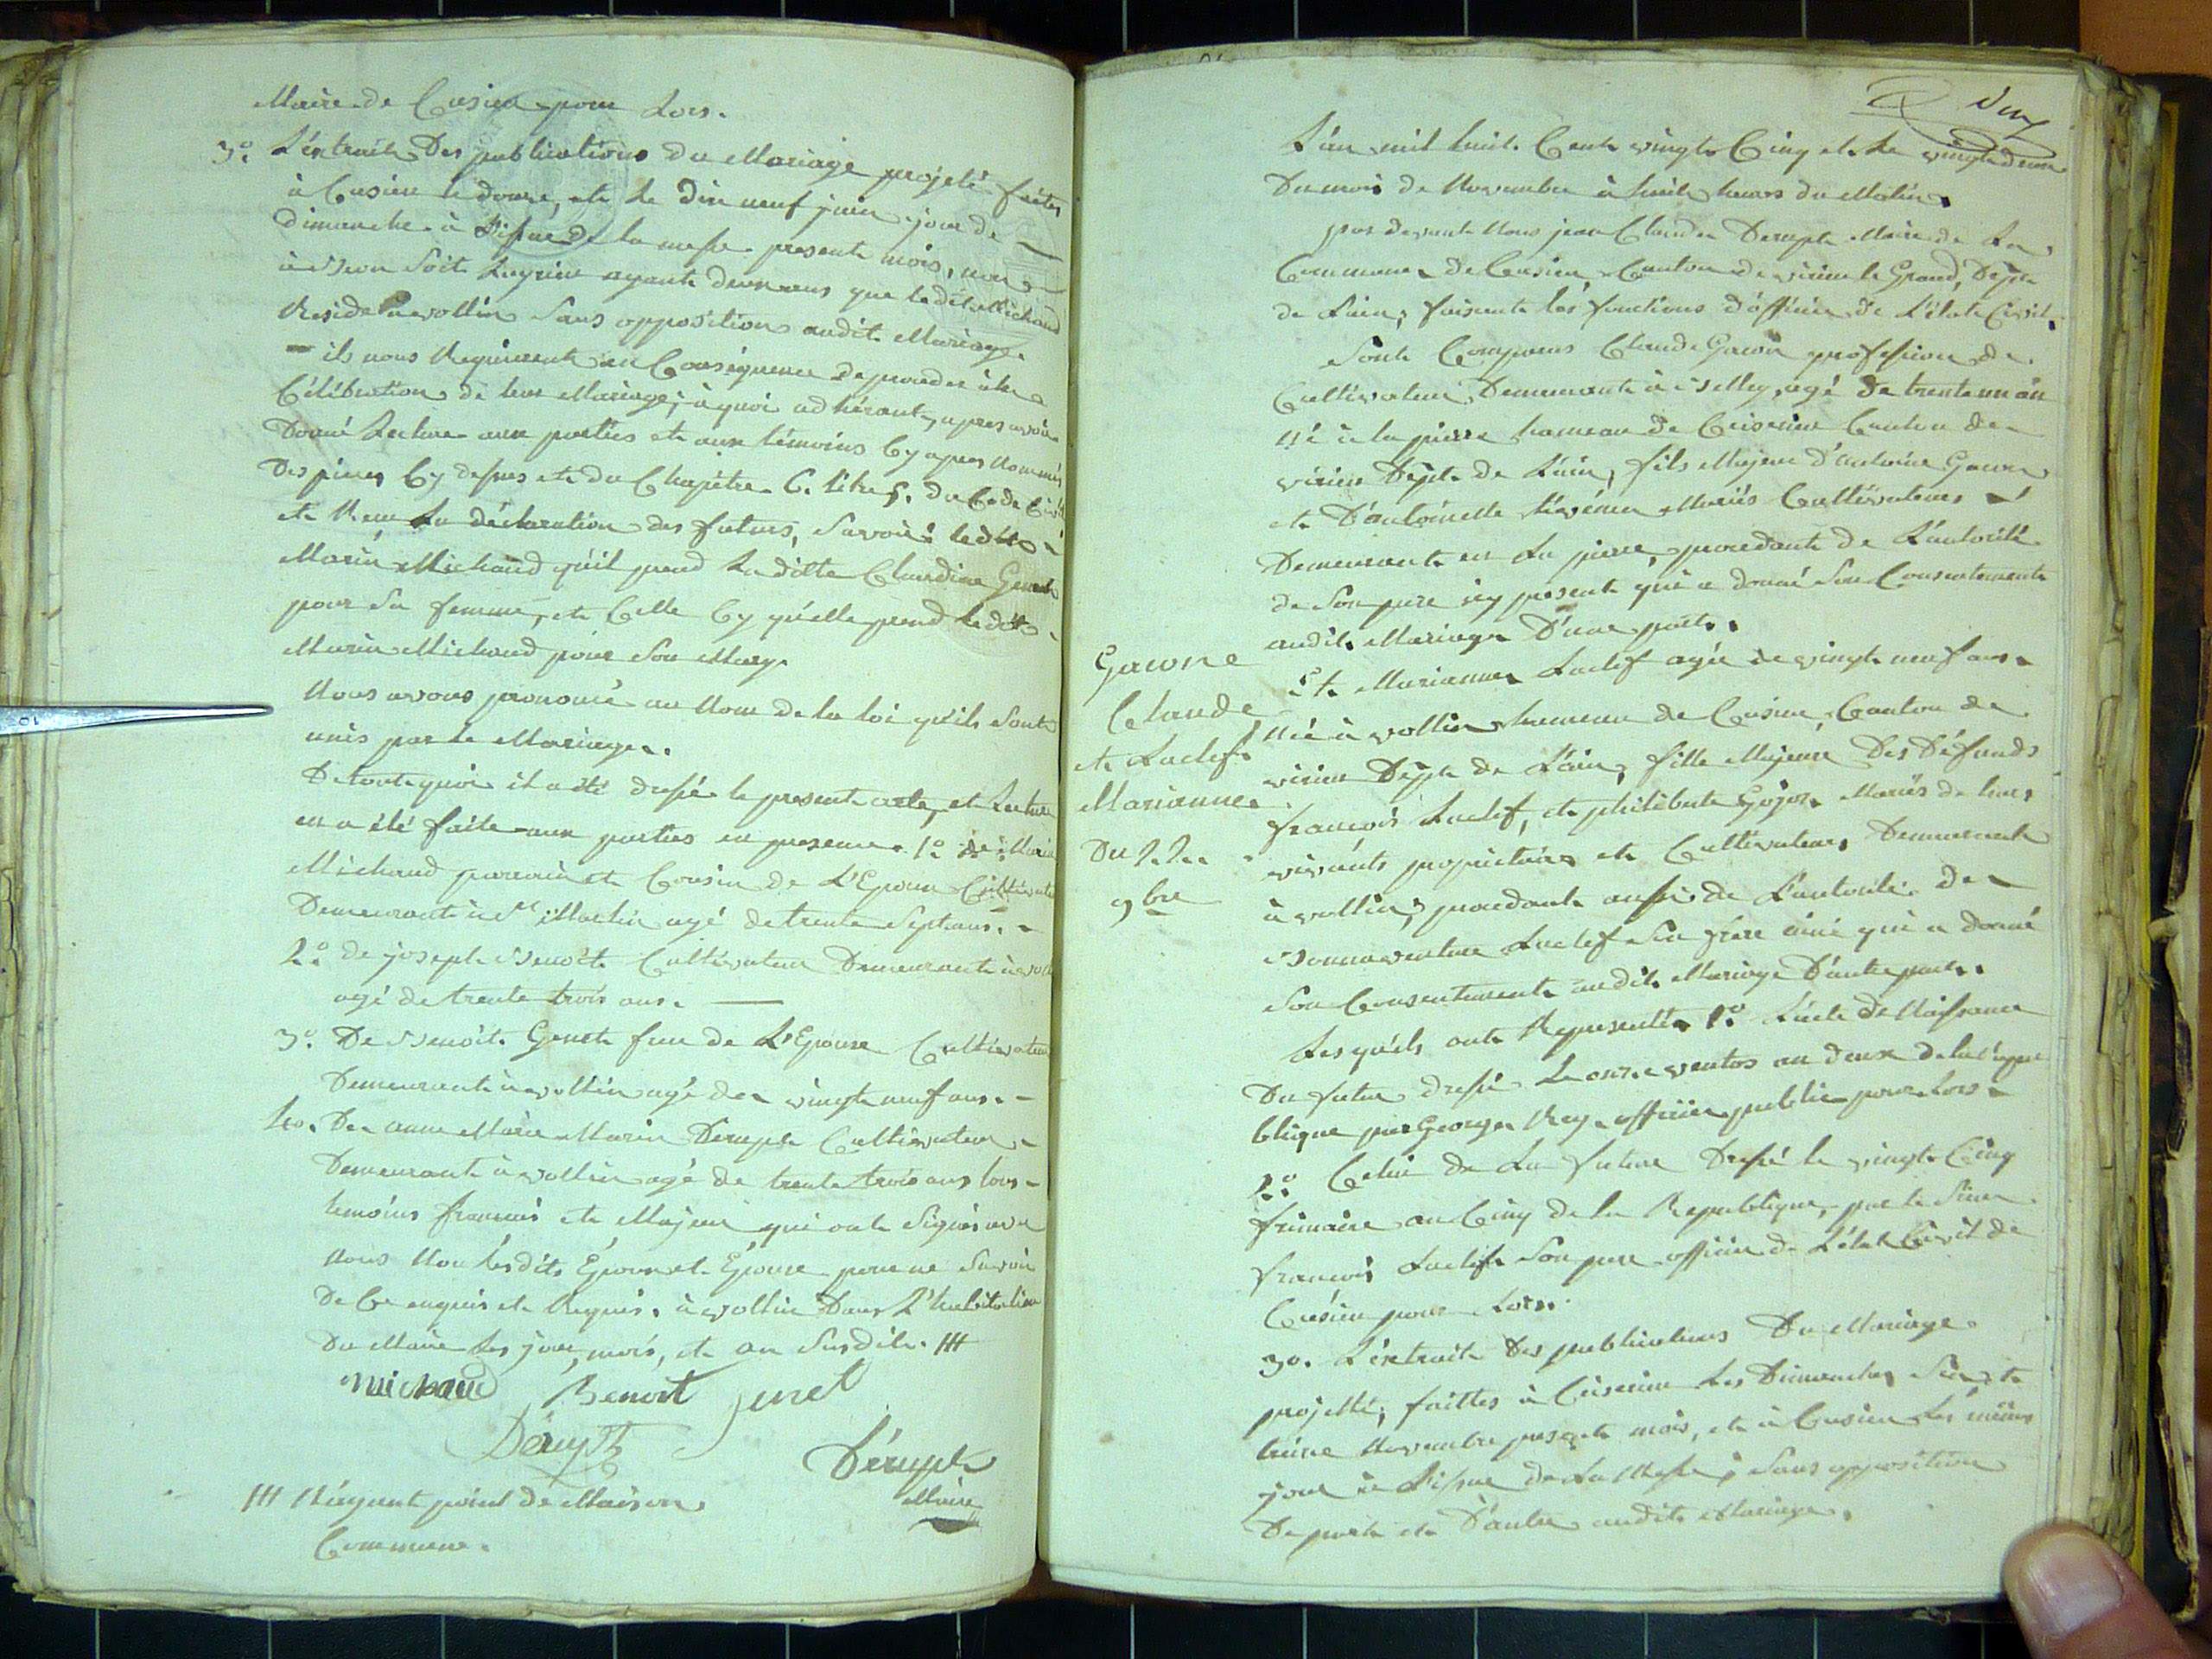 Maire de Cusieu pour Lors.
3.° L'éxtrait Des publications du Mariage projeté faites
à Cusieu le douze, et Le Dix neuf juin jour de
dimanche à L'issue De la messe present mois, non
à Soit ayant deux ans que ledit Michaud
Reside à vollin Sans opposition audit Mariage.
ils nous Requierent en Conséquence de proceder à la
Célébration de leur Mariage; à quoi adhérant, apres avoir
Donné Lecture aux parties et aux témoins Cy apres Nommés
Des pieces Cy dessus et du Chapitre 6. titre 5. du Code Civil
et Recu La déclaration des futurs, Savoir: ledit
Marin Michaud qu'il prend La ditte Claudine Genet
pour Sa femme, et Celle Cy qu'elle prend Ledit
Marin Michaud pour Son Mary.
Nous avons prononcé au Nom de la loi qu'ils Sont
unis par Le Mariage.
De tout quoi il a été dressé le present acte, et Lecture
en a été faite aux parties en presence 1.° de Marin
Michaud parrain et Cousin de L'Epoux Cultivateur
Demeurant à S.t Martin agé de trente Sept ans.
2.° de joseph Benoit Cultivateur Demeurant à vollin
agé de trente trois ans.
3.° De Benoit Genet frere de L'Epouse Cultivateur
Demeurant à vollin agé de vingt neuf ans.
4o. De anne Marie Marin Dérupt Cultivateur
Demeurant à vollin agé de trente trois ans tous
temoins francais et Majeur qui ont Signés avec
nous Non lesdits Époux et Épouse pour ne Savoir
De Ce enquis et Requis. à vollin Dans L'habitation
Du Maire Les jour, mois, et an Susdits. ///
michaud Benoit Jenet
Dérupt
Dérupt
Maire
/// N'ayant point de Maison
Commune.
L'an mil huit Cent vingt Cinq et Le vingt deux
Du mois de Novembre à huit heures du Matin.
par devant Nous jean Claude Derupt Maire de La
Commune de Cusieu Canton de virieu le Grand, Dépt
de L'ain; faisant les fonctions d'officier de L'état Civil.
Sont Comparus Claude Gawne profession de
Cultivateur, Demeurant à Belley, agé de trente un an
né à la pierre hameau de Ceiserieu Canton de
virieu Dépt. de L'ain, fils Majeur d'antoine Gawne
et D'antoinette Mariés Cultivateurs
Demeurant en La pierre, procedant de L'autorité
de Son pere icy present qui a donné Son Consentement
audit Mariage D'une part.
Gawne
Claude
et Luclef
Marianne
Du 22.
9bre
Et Marianne Luclef agée de vingt neuf ans
Née à vollin hameau de Cusieu, Canton de
virieu Dépt. de L'ain, fille Majeure Des Défunds
françois Luclef, et philiberte Gojoz Mariés de leurs
vivants proprietaires et Cultivateurs Demeurant
à vollin; procedant aussi de L'autorité de
Bonnaventure Luclef Son frere ainé qui a donné
Son Consentement audit Mariage D'autre part.
Lesquels ont Representés 1.° L'acte de Naissance
Du futur dressé Le onze ventos an deux de la Répu
blique par George Rey officier public pour Lors.
2.° Celui de La future Dressé le vingt Cinq
frimaire an Cinq de la Republique, par le Sieur
francois Luclef Son pere officier de L'état Civil de
Cusieu pour Lors.
3o. L'éxtrait Des publications Du Mariage
projetté; faittes à Ceiserieu Les Dimanches Six et
treize Novembre present mois, et à Cusieu Les mêmes
jour à L'issue de La Messe; Sans opposition
De part et D'autre audit Mariage.